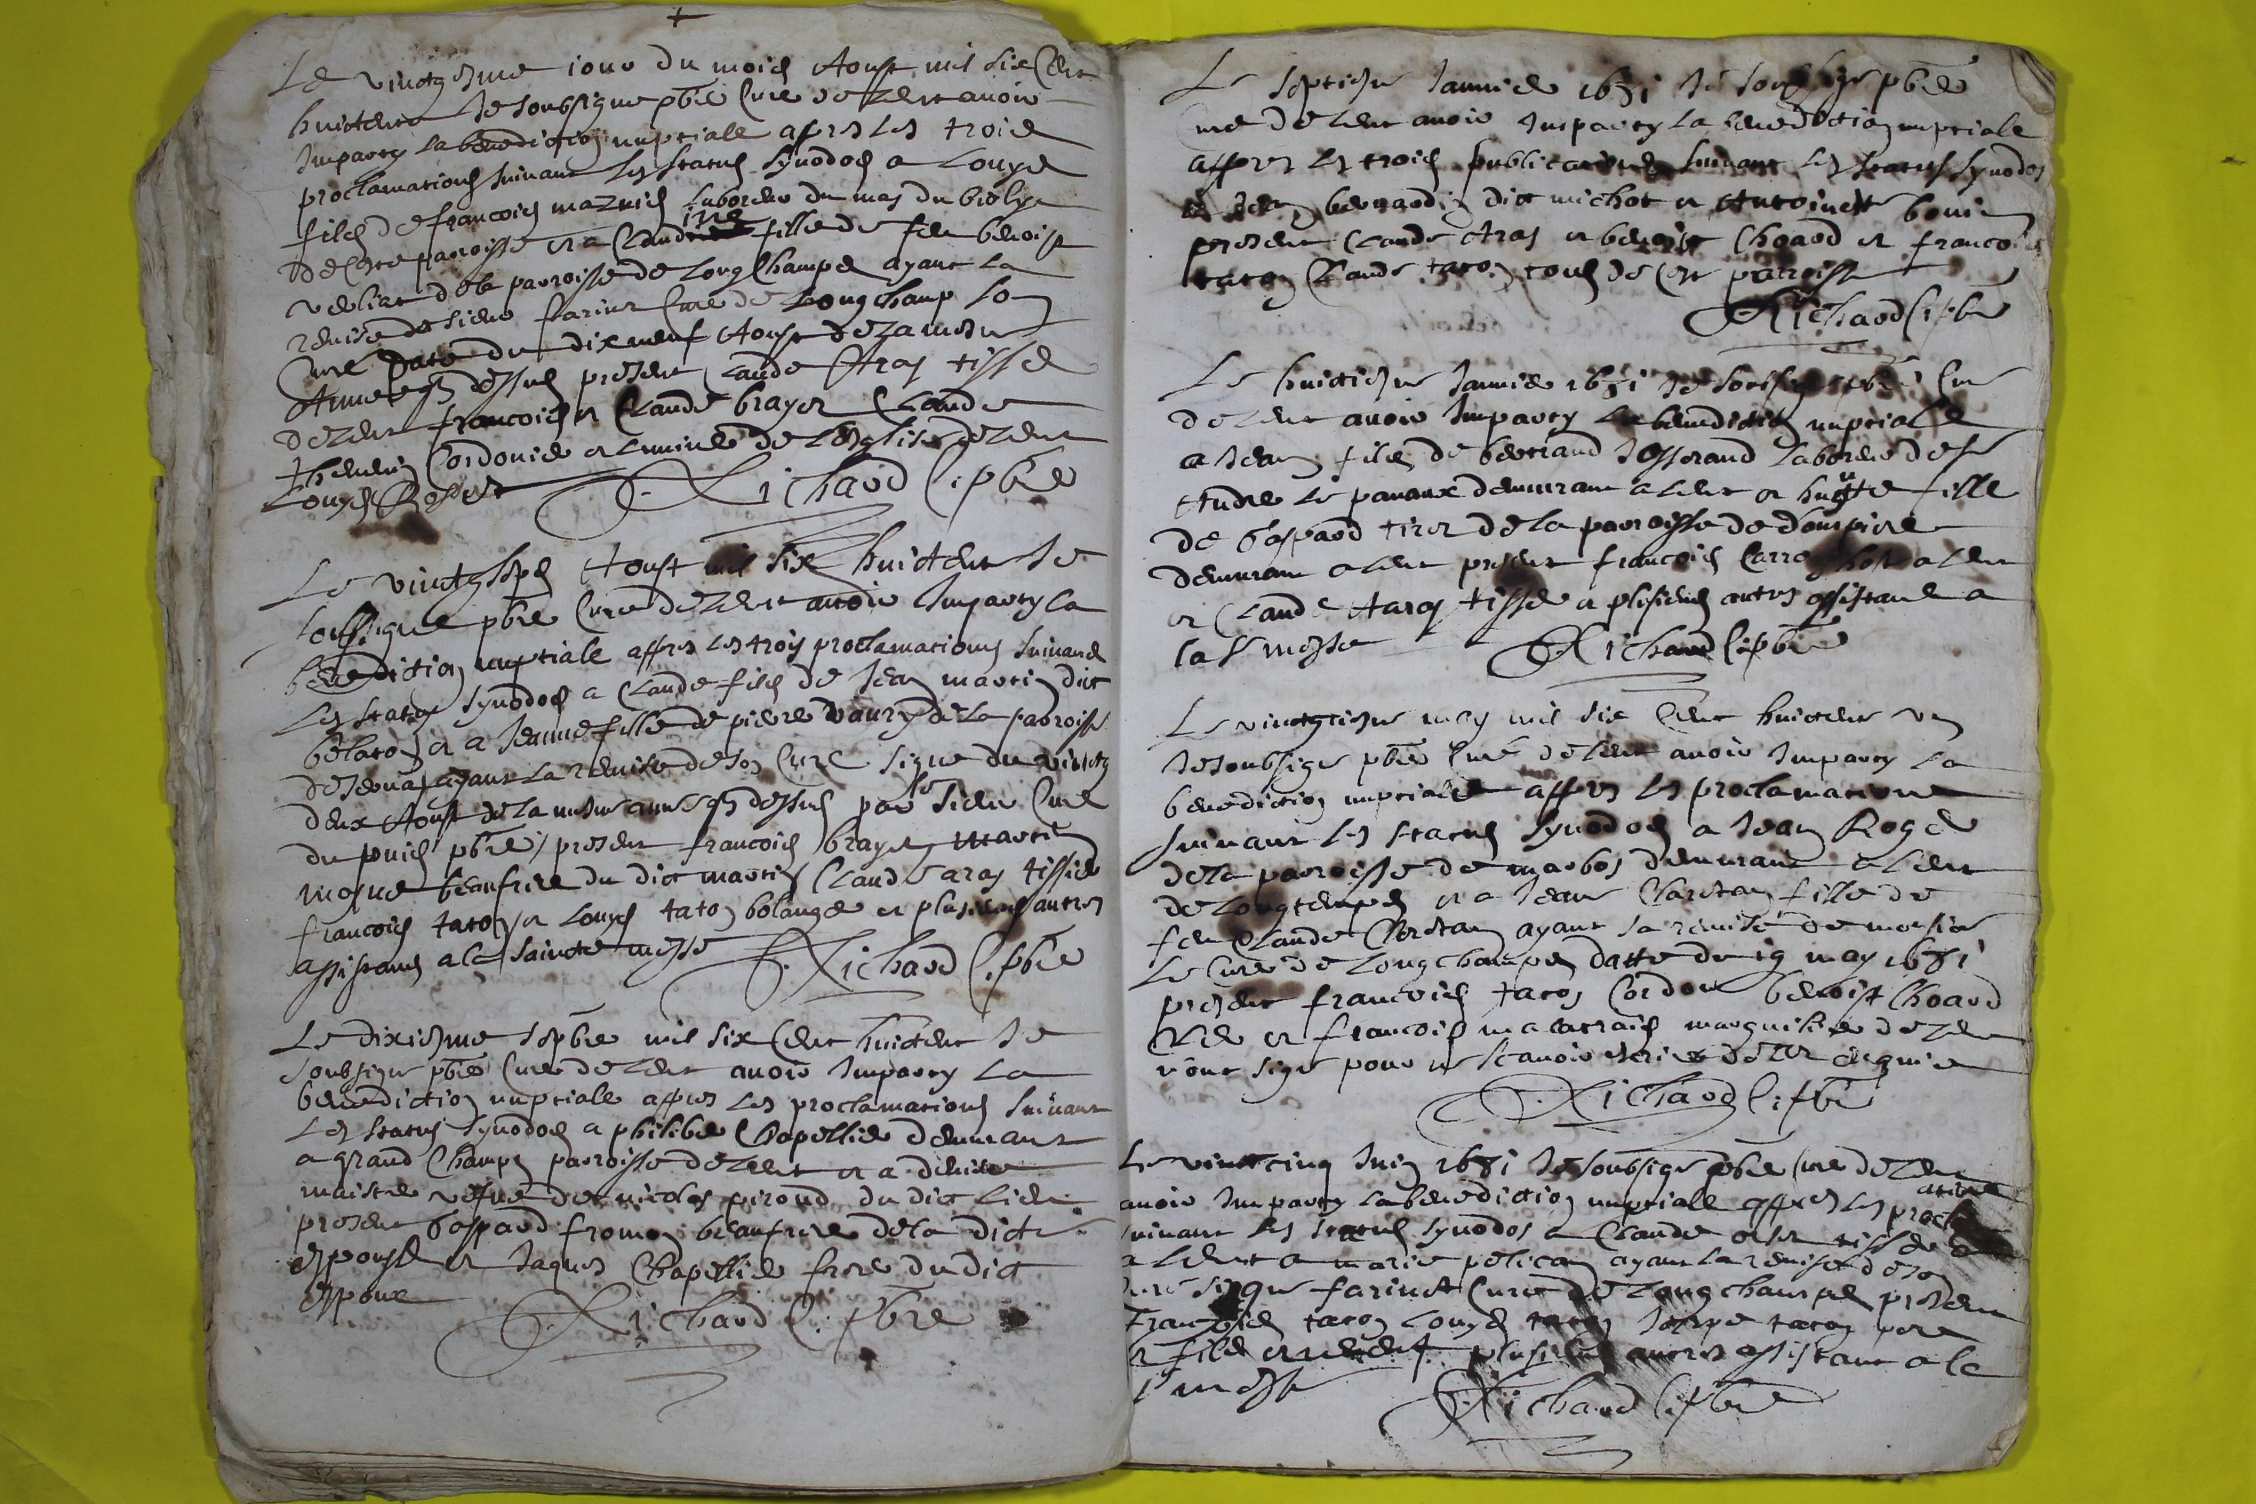 Le vingtiesme jour du mois Aoust mil six Cent
huictente Je soubsigne pbre Cure de Lent avoir
Imparty la benediction nuptiale appres les trois
proclamations suivant les statuts synodos a Louys
fils de francois laboreur du mas du
de Ceste parroisse et a Claudine fille de feu benoist
de la parroisse de Longchamps ayant la
remise de sieur farint Cure de Longchamp son
Cure date du dixneuf Aoust de la mesme
Annee que dessus present Claude Aras tissie
de Lent francois et Claude brayer Claude
thevenin Cordonie et de l'esglise de Lent
Louys
Richard C. pbre
Le vingt sept Aoust mil six huictente Je
soussigne pbre Cure de Lent avoir Imparty la
benediction nuptiale appres les trois proclamations suivant
les statuts synodos a Claude fils de Jean martin dict
belaton et a Jeanne fille de piere vaury de la parroisse
de ayant la remise de son Cure signe du vingt
deux Aoust de la mesme annee que dessus par le sieur Cure
du puis pbre present francois brayer martin
beaufrere du dict martin Claude aras tissie
francois taton et Louys taton bolange et plusieurs autres
assistans a la saincte messe
Richard C. pbre
Le dixiesme 7pbre mil six Cent huictente Je
soubsigne pbre Cure de Lent avoir Imparty la
benediction nuptiale appres les proclamations suivant
les statuts synodos a philibe Chapellie demurant
a grand Champs parroisse de Lent et a denise
maistre vefve de nicolas pirond du dict lieu
present gaspard fromon beaufrere de la dicte
espouse et Jaques Chapellie frere du dict
espoux
Richard C. pbre
Le septiesme Janvier 1681 Je soubsigne pbre
cure de Lent avoir Imparty la benediction nuptiale
appres les trois publications suivant les statuts synodos
a Jean bernardin dict michot et Antoinette
present Claude Aras et benoist Choard et francois
taton Claude taton tous de Ceste parroisse
Richard C. pbre
Le huictiesme Janvier 1681 Je soubsigne pbre Cure
de Lent avoir Imparty la benediction nuptiale
a Jean fils de bertrand Josserand laboreur de st
Andre le panoux demurant a Lent et huguette fille
de gaspard tiret de la parroisse de dompiere
demurant a Lent present francois Carre hoste a Lent
et Claude Aras tissie et plusieurs autres assistans a
la ste messe
Richard C. pbre
Le vingtiesme may mil six Cent huictente un
Je soubsigne pbre Cure de Lent avoir Imparty la
benediction nuptiale appres les proclamations
suivant les statuts synodos a Jean Roge
de la parroisse de marbos demurant a Lent
de Longtemps et a Jeane Charetan fille de
feu Claude Charetan ayant sa remise de monsieur
le Cure de Longchamps datte du 19 may 1681
present francois taton Cordon benoist Choard
et francois marguilier de Lent
n'ont signe pour ne scavoir escrire de ce enquis
Richard C. pbre
Le vinctcinq Juin 1681 Je soubsigne pbre Cure de Lent
avoir Imparty la benediction nuptiale appres les proclamations
suivant les statuts synodos a Claude tissie
a Lent et a marie pelican ayant la remise de son
Cure signe farinet Cure de Longchamps present
francois taton Louys taton Josepe taton pere
et fils et plusieurs autres assistant a la
ste messe
Richard C. pbre